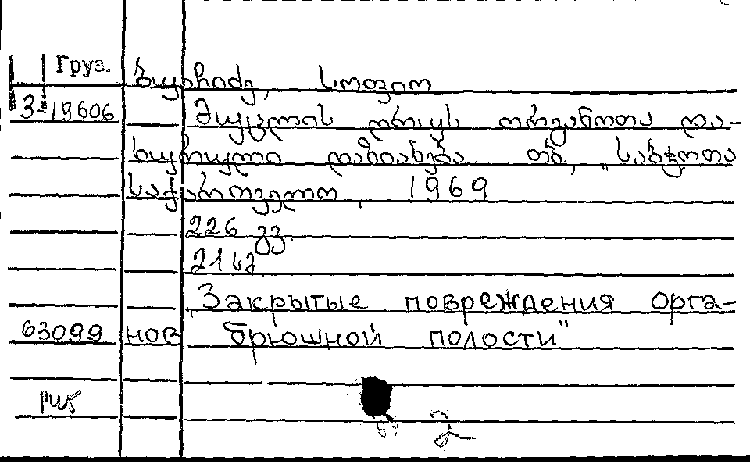 Груз.
ხუჯაძე, სოფიო
3-19606 მუცლის ღრუს ორგანოთა და-
ხურული დაზიანება თბ, „საბჭოთა
საქართველო, 1969
226 გვ.
„Закрытые повреждения орга-
63099 нов брюшной полости"